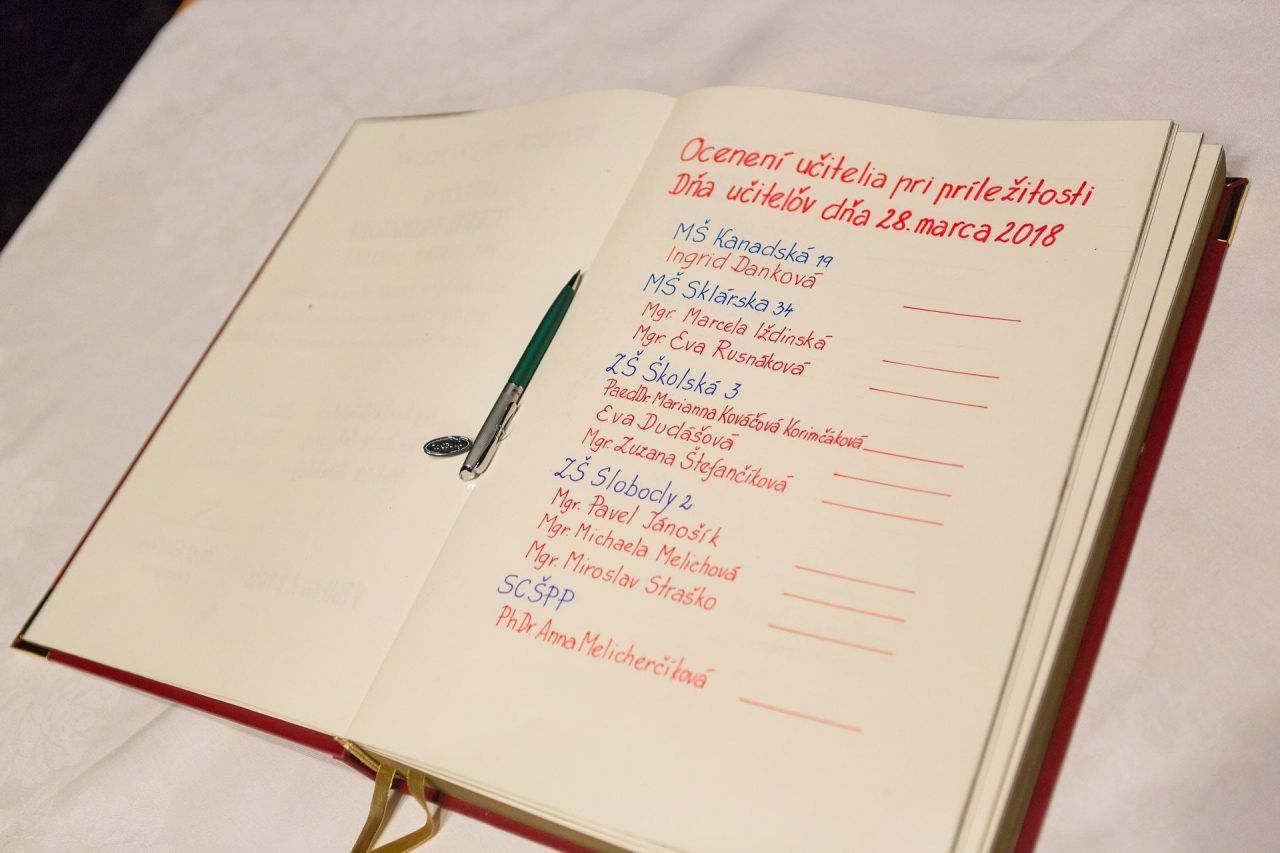 Ocenení učitelia pri príležitosti
Dňa učiteľov dňa 28. marca 2018
MŠ Kanadská 19
Ingrid Danková
MŠ Sklárska 34
Mgr. Marcela Iždinská
Mgr. Eva Rusnáková
ZŠ Školská 3
PaedDr. Marianna Kováčová Korimčáková
Eva Dudášová
Mgr. Zuzana Štefančíková
ZŠ Slobody 2
Mgr. Pavel Jánošík
Mgr. Michaela Melichová
Mgr. Miroslav Straško
SCŠPP
PhDr. Anna Melicherčíková